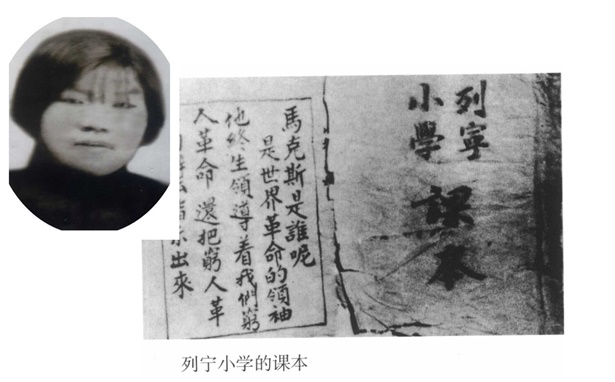 列寧
小學
課本
馬克斯是誰呢
是世界革命的領袖
他終生領導着我們窮
人革命還把窮人革
出來
列宁小学的课本